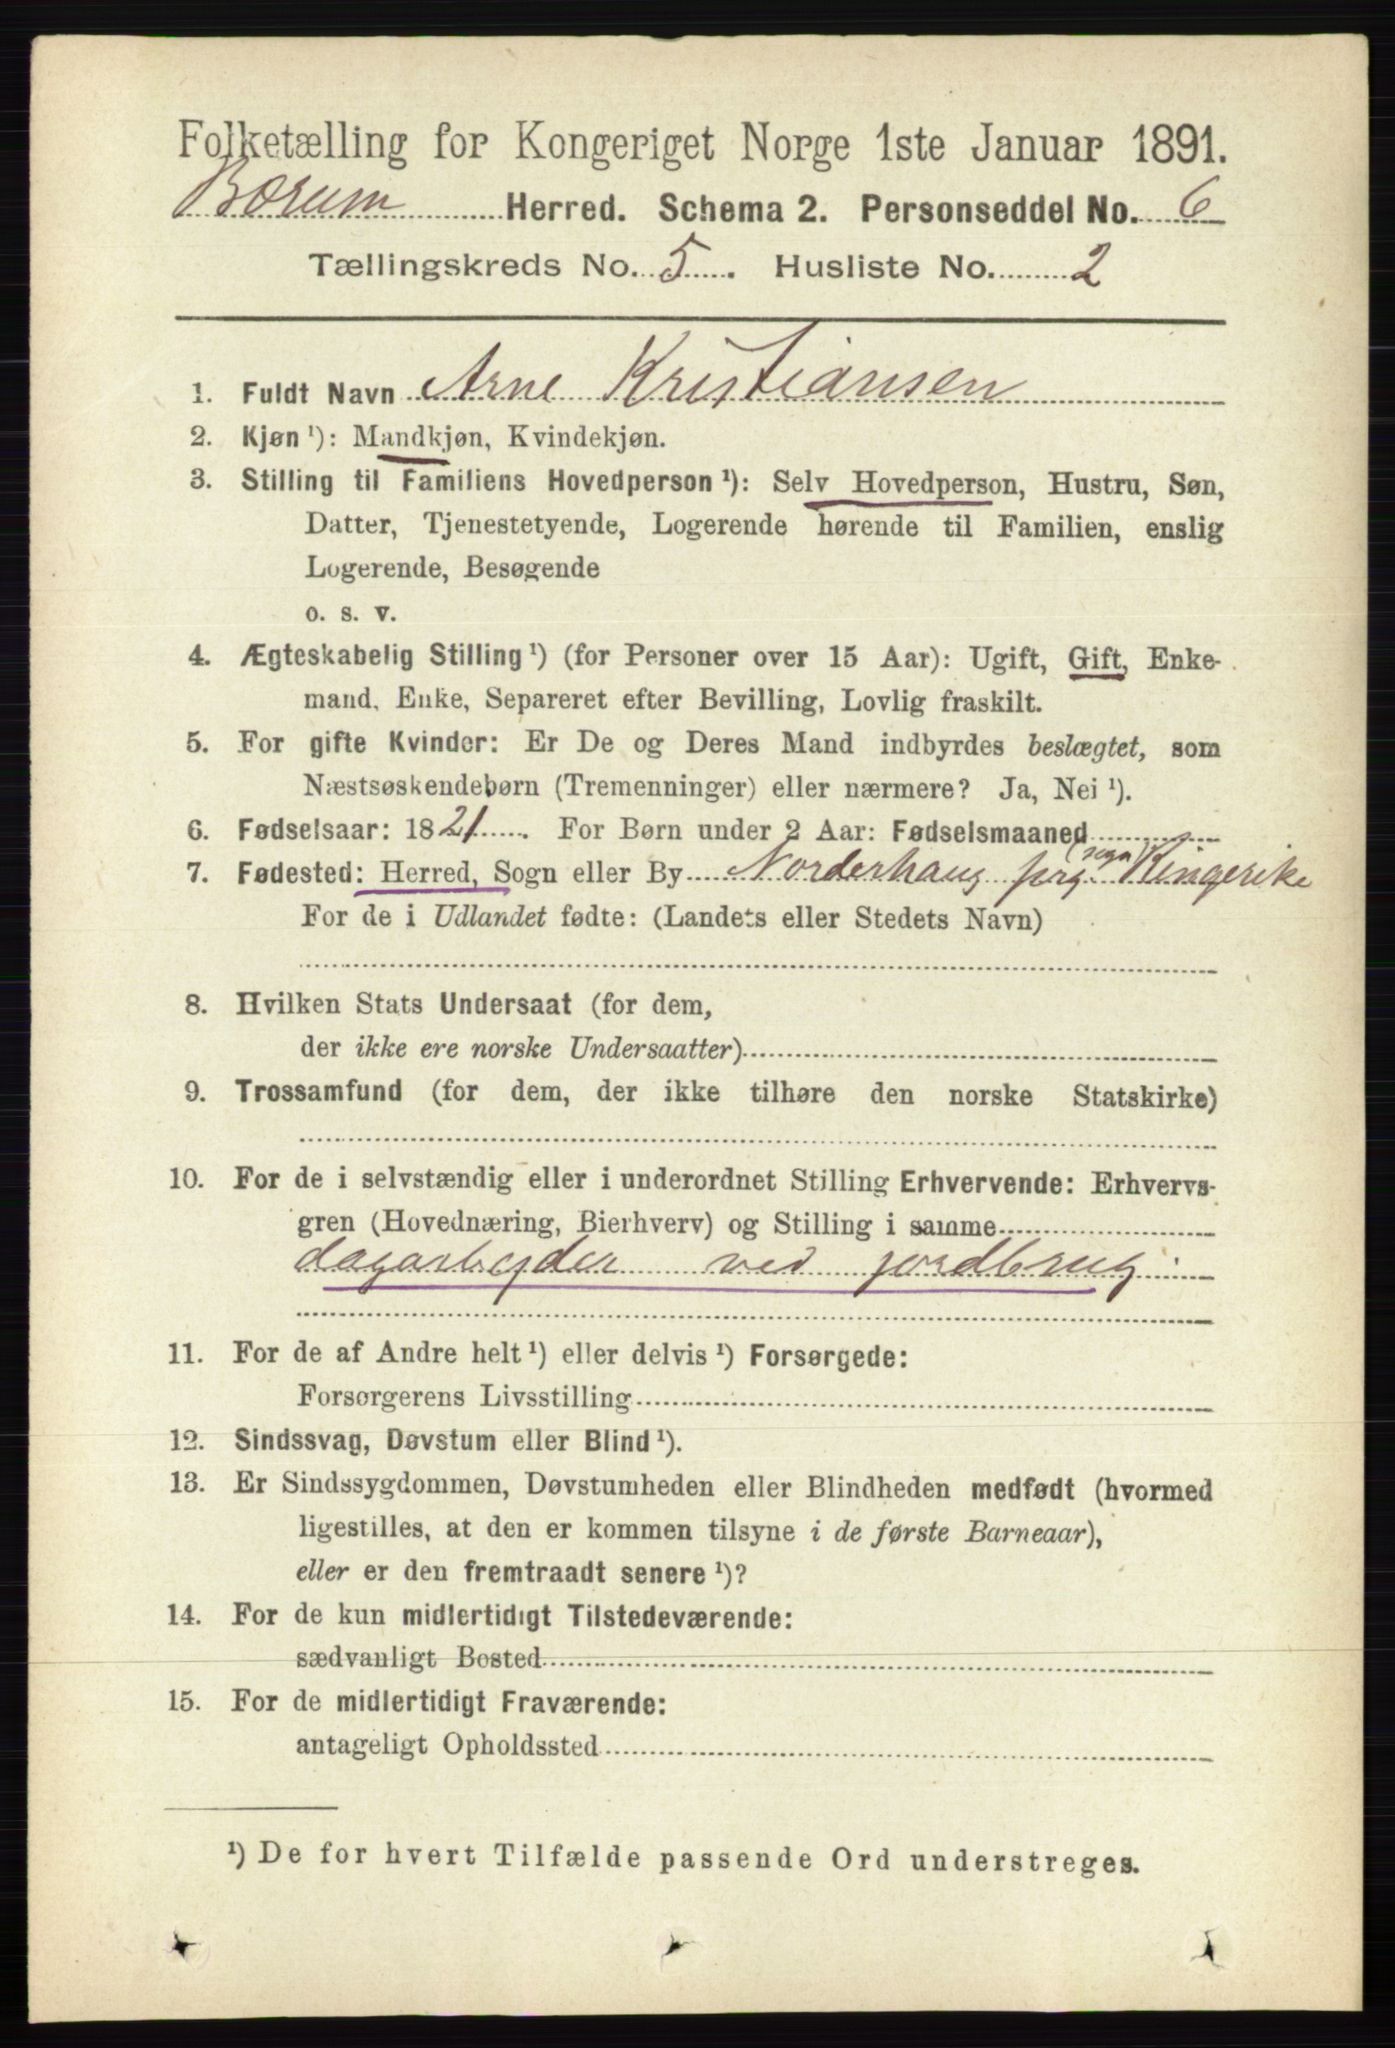 Folketælling for Kongeriget Norge 1ste Januar 1891.
Bærum Herred. Schema 2. Personseddel No. 6
Tællingskreds No. 5. Husliste No. 2
1. Fuldt Navn Arne Kristiansen
2. Kjøn ¹): Mandkjøn, Kvindekjøn.
3. Stilling til Familiens Hovedperson ¹): Selv Hovedperson, Hustru, Søn,
Datter, Tjenestetyende, Logerende hørende til Familien, enslig
Logerende, Besøgende
o. s. v.
4. Ægteskabelig Stilling ¹) (for Personer over 15 Aar): Ugift, Gift, Enke-
mand, Enke, Separeret efter Bevilling, Lovlig fraskilt.
5. For gifte Kvinder: Er De og Deres Mand indbyrdes beslægtet, som
Næstsøskendebørn (Tremenninger) eller nærmere? Ja, Nei ¹).
6. Fødselsaar: 1821. For Børn under 2 Aar: Fødselsmaaned
7. Fødested: Herred, Sogn eller By Norderhaug prg. (sogn) Ringerike
For de i Udlandet fødte: (Landets eller Stedets Navn)
8. Hvilken Stats Undersaat (for dem,
der ikke ere norske Undersaatter)
9. Trossamfund (for dem, der ikke tilhøre den norske Statskirke)
10. For de i selvstændig eller i underordnet Stilling Erhvervende: Erhvervs-
gren (Hovednæring, Bierhverv) og Stilling i samme
dagarbeyder ved jordbrug
11. For de af Andre helt ¹) eller delvis ¹) Forsørgede:
Forsørgerens Livsstilling
12. Sindssvag, Døvstum eller Blind ¹).
13. Er Sindssygdommen, Døvstumheden eller Blindheden medfødt (hvormed
ligestilles, at den er kommen tilsyne i de første Barneaar),
eller er den fremtraadt senere ¹)?
14. For de kun midlertidigt Tilstedeværende:
sædvanligt Bosted
15. For de midlertidigt Fraværende:
antageligt Opholdssted
¹) De for hvert Tilfælde passende Ord understreges.